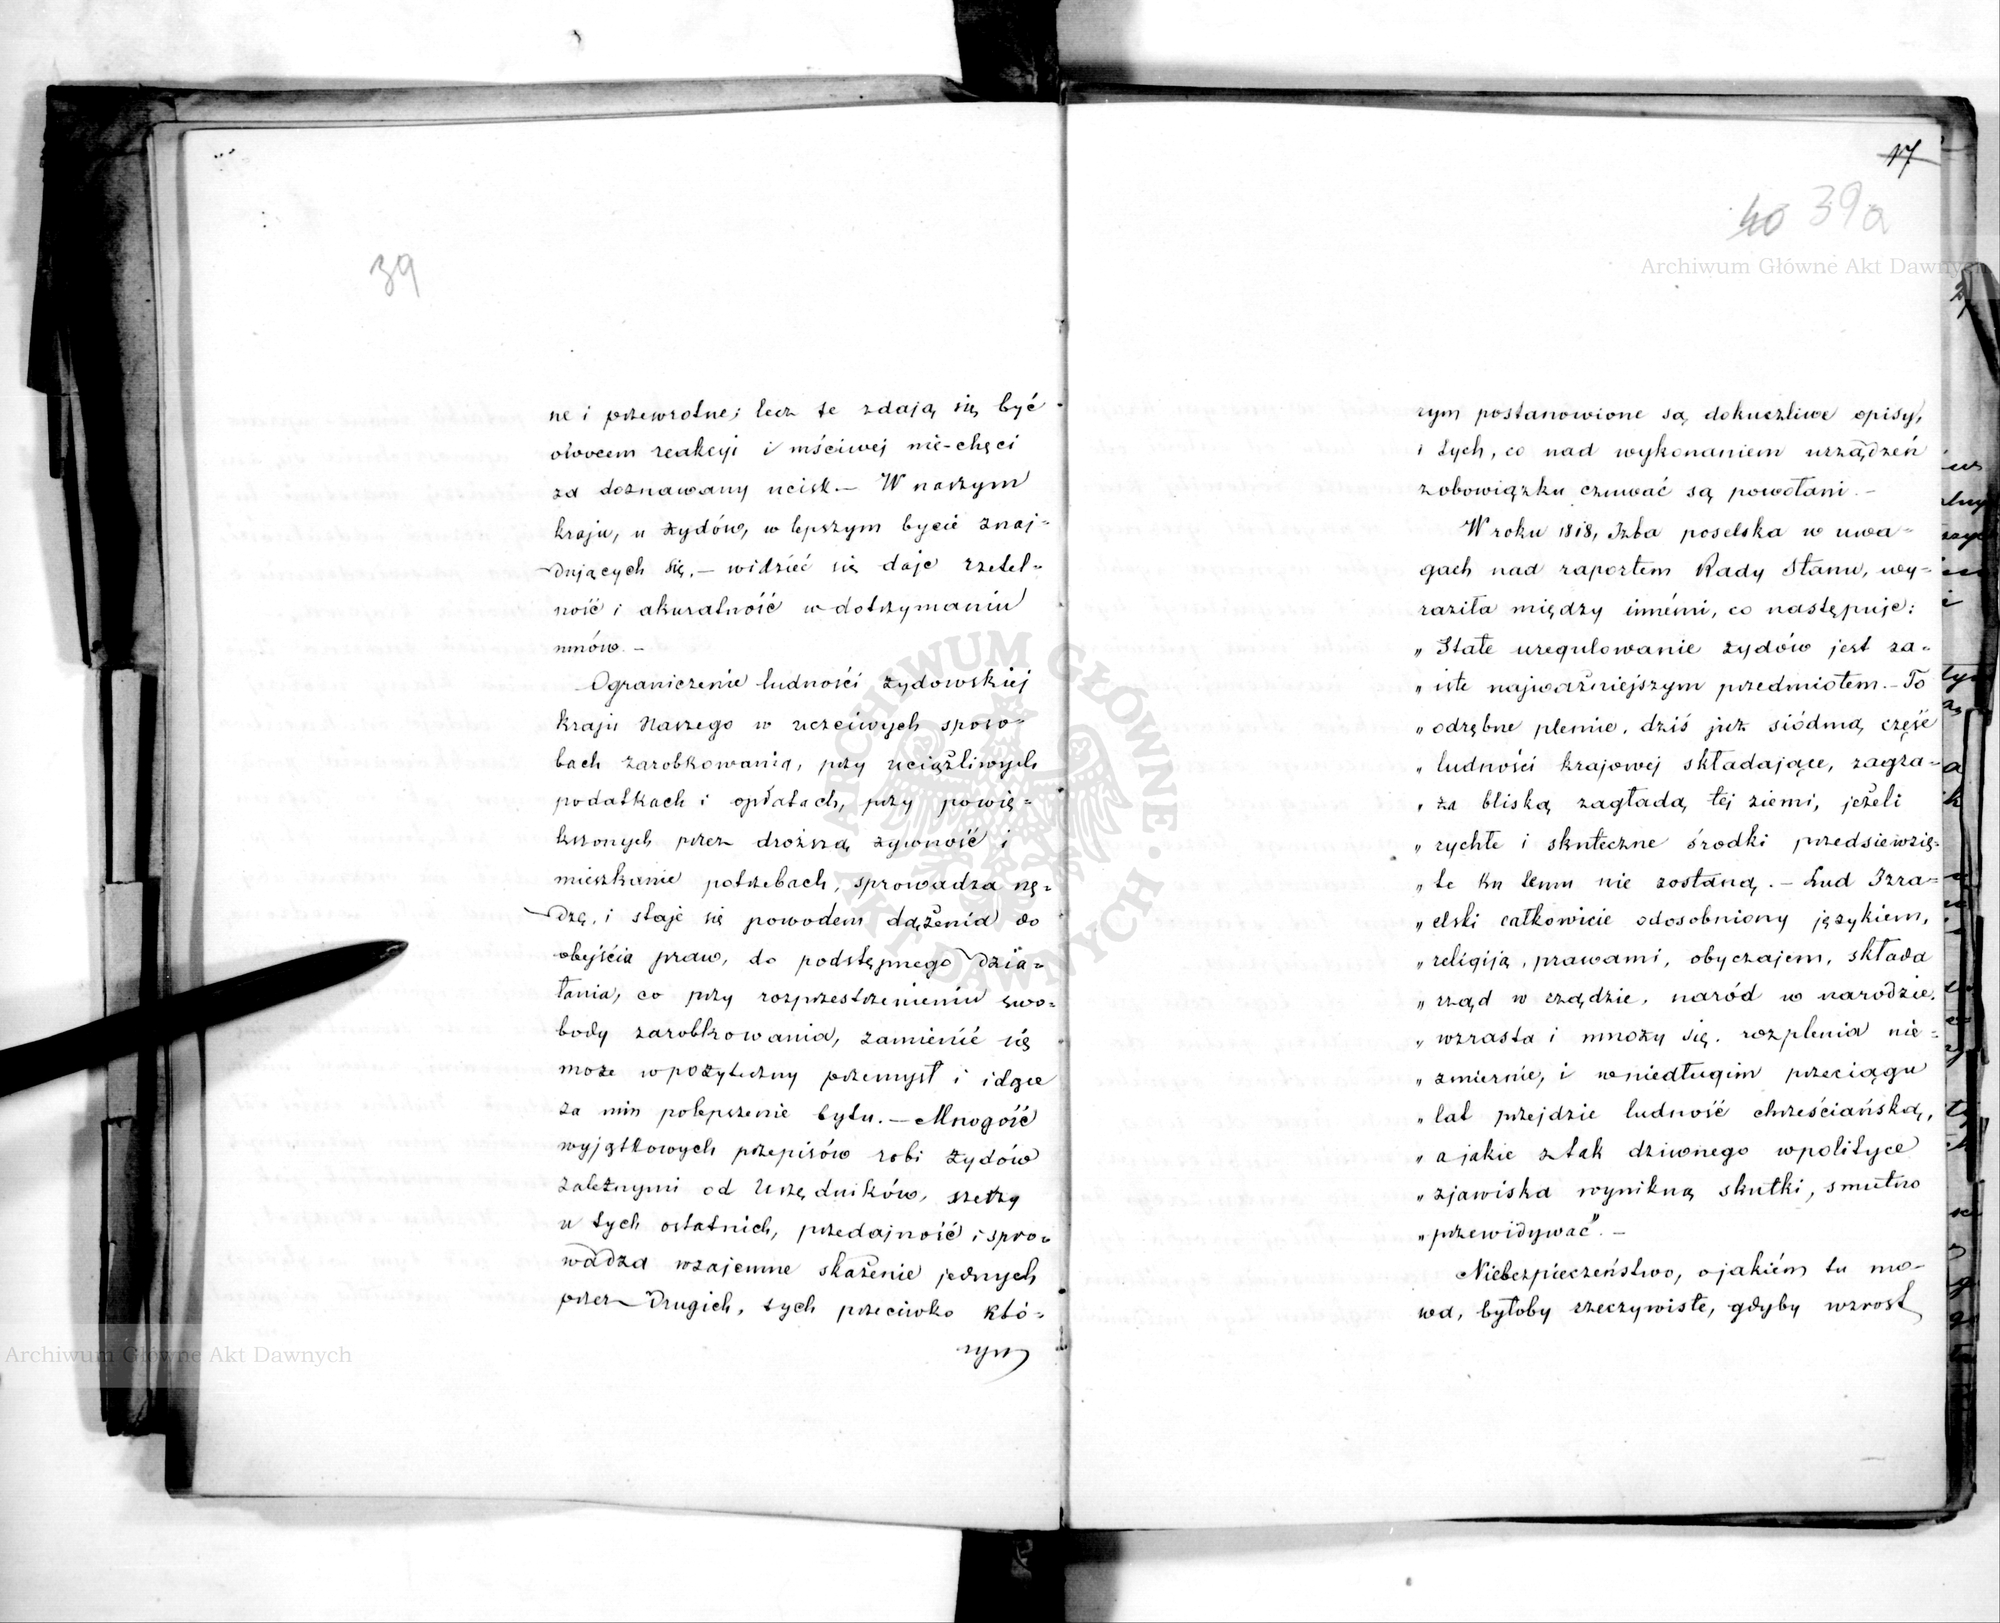 39
ne i przewrotne; lecz te zdają się być
owocem reakcyi i mściwej nie-chęci
za doznawany ucisk. — W naszym
kraju, u żydów, w lepszym bycie znaj-
dujących się, — widzieć się daje rzetel-
ność i akuratność w dotrzymaniu
umów. —
Ograniczenie ludności żydowskiej
kraju Naszego w uczciwych sposo-
bach zarobkowania, przy uciążliwych
podatkach i opłatach, przy powię-
kszonych przez droższą żywność i
mieszkanie potrzebach, sprowadza nę-
dzę, i staje się powodem dążenia do
obejścia praw, do podstępnego dzia-
łania, co przy rozprzestrzenieniu swo-
body zarobkowania, zamienić się
może w pożyteczny przemysł i idące
za nim polepszenie bytu. — Mnogość
wyjątkowych przepisów robi żydów
zależnymi od Urzędników, szerzy
u tych ostatnich, przedajność i spro-
wadza wzajemne skażenie jednych
przez drugich, tych przeciwko któ-
rym
17
40 39a
rym postanowione są dokuczliwe opisy,
i tych, co nad wykonaniem urządzeń
z obowiązku czuwać są powołani. —
W roku 1818, Izba poselska w uwa-
gach nad raportem Rady Stanu, wy-
raziła między innémi, co następuje:
„ Stałe uregulowanie żydów jest za-
„ iste najważniejszym przedmiotem. — To
„ odrębne plemie, dziś już siódmą część
„ ludności krajowej składające, zagra-
„ ża bliską zagładą tej ziemi, jeżeli
„ rychłe i skuteczne środki przedsiewzię-
„ te ku temu nie zostaną. — Lud Izra-
„ elski całkowicie odosobniony językiem,
„ religiją, prawami, obyczajem, składa
„ rząd w rządzie, naród w narodzie,
„ wzrasta i mnoży się, rozplenia nie-
„ zmiernie, i w niedługim przeciągu
„ lat przejdzie ludność chrześciańską,
„ a jakie z tak dziwnego w polityce
„ zjawiska wynikną skutki, smutno
„ przewidywać". —
Niebezpieczeństwo, o jakiém tu mo-
wa, byłoby rzeczywiste, gdyby wzrost
Archiwum Główne Akt Dawnych
Archiwum Główne Akt Dawnych
ARCHIWUM GŁÓWNE AKT DAWNYCH